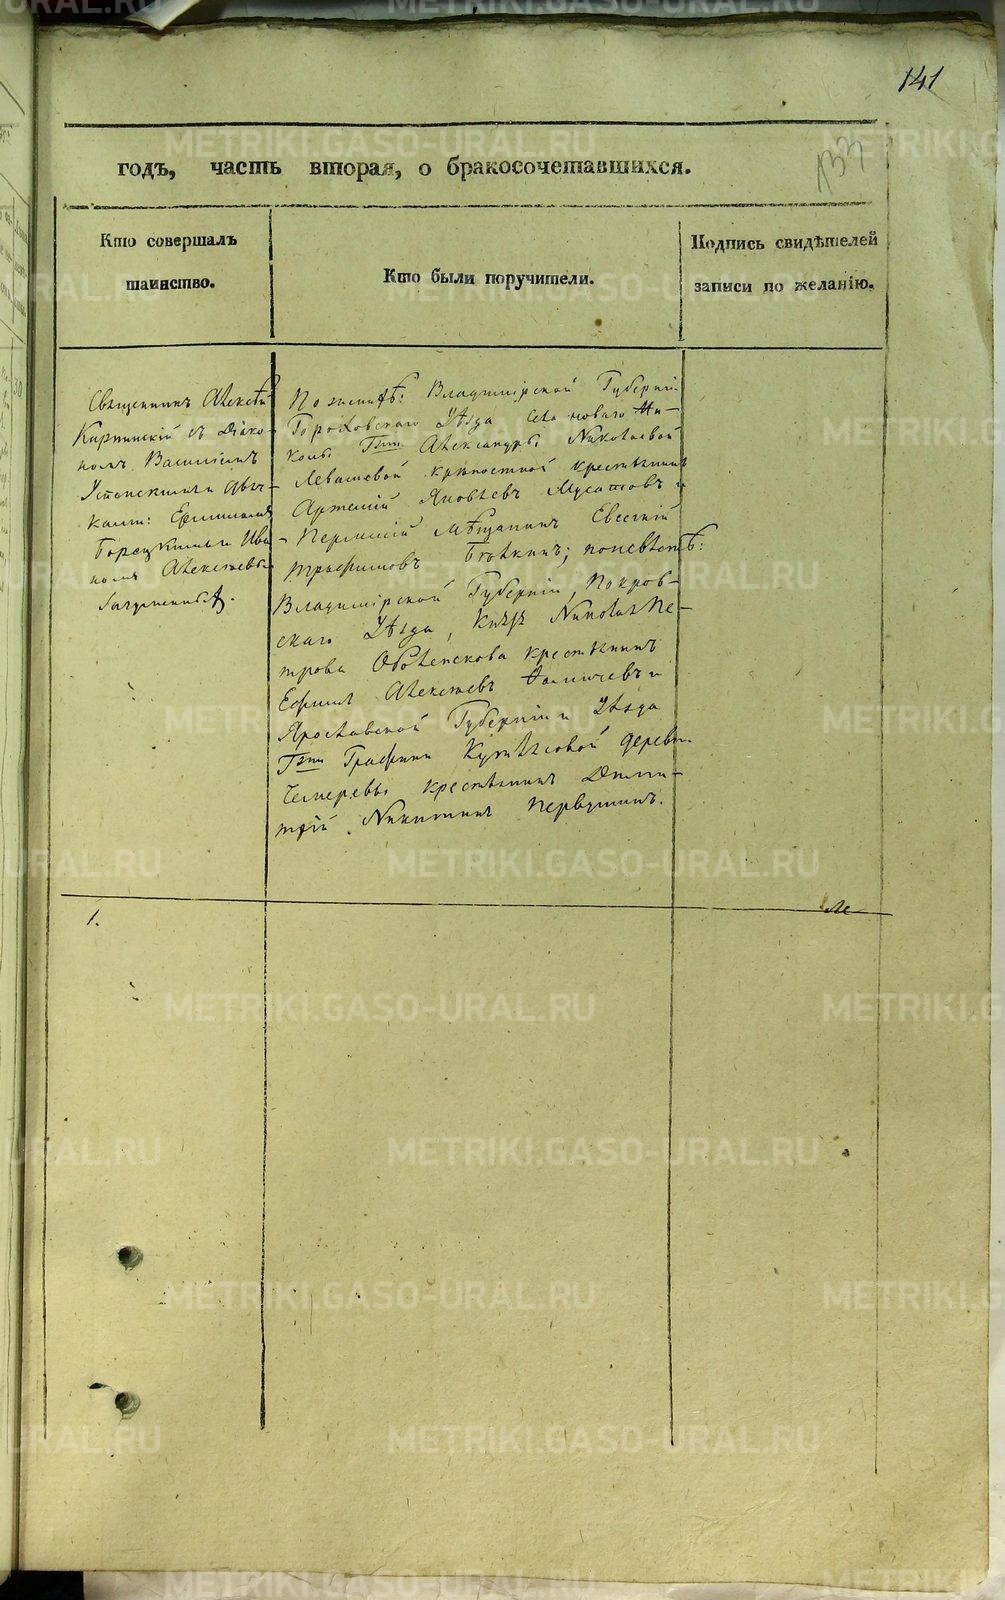 141
133
годъ, часть вторая, о бракосочетавшихся.
Кто совершалъ
таинство.
Кто были поручители.
Подпись свидѣтелей
записи по желанію.
Священникъ Алексѣй
Карпинскій съ Діако-
номъ Василіемъ
Успенскимъ и дьяч-
ками:
и Ива
номъ Алексѣевы
По женихѣ: Владимірской Губерніи
Гороховскаго Уѣзда Села новаго Ни-
колы Гжи Александры Николаевой
Левашевой крѣпостной крестьянинъ
Артемій Яковлевъ Мусатовъ и
Пермскій Мѣщанинъ Евсегній
Трифановъ Бѣлкинъ; поневѣстѣ:
Владимірской Губерніи, Покров-
скаго Уѣзда, Князя Николая Пе-
трова Оболенскова крестьянинъ
Ефимъ Алексѣевъ и
Ярославской Губерніи и Уѣзда
Гжи Графини Кутайсовой деревни
крестьянинъ Дми-
трій Никитинъ Первушинъ.
1.
METRIKI.GASO-URAL.RU